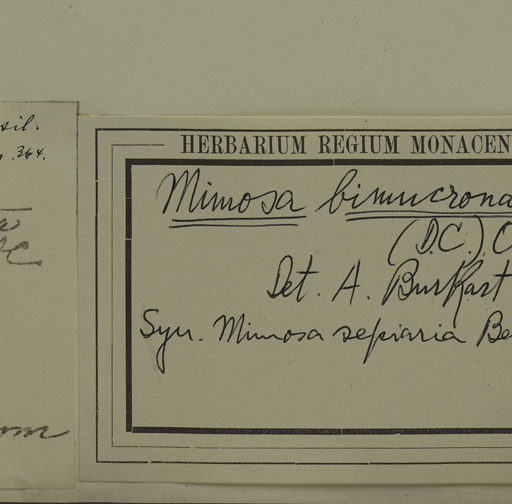 sil.
364.
HERBARIUM REGIUM MONACEN
Mimosa bimucrona
(D.C.) O
Det. A. Burkart
Syn. Mimosa sepiaria Be